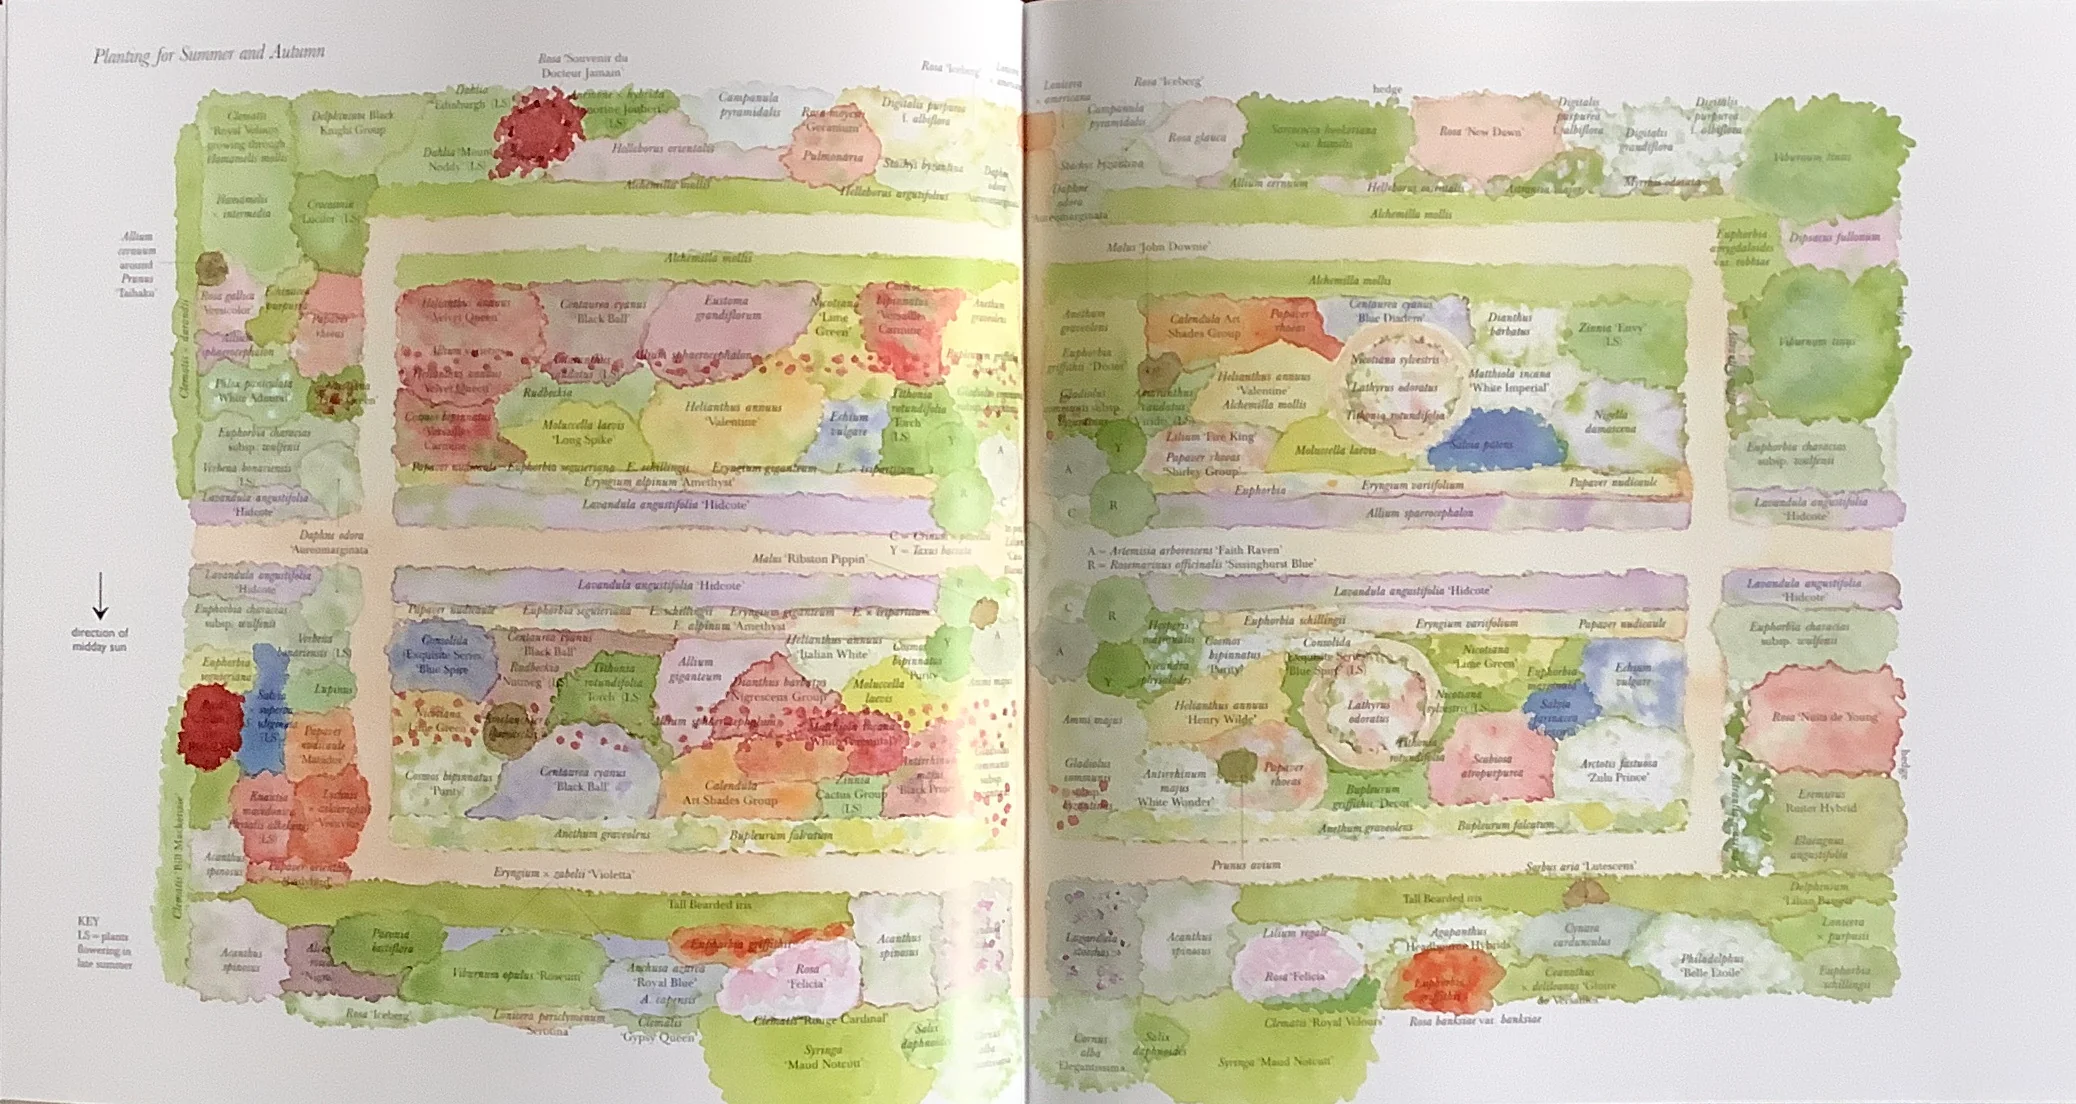 Planting for Summer and Autumn
Rosa 'Souvenir du
Docteur Jamain'
Dahlia
'Edinburgh' (LS)
Clematis
'Royal Velours'
growing through
Hamamelis mollis
Delphinium Black
Knight Group
Dahlia 'Mount
Noddy' (LS)
Helleborus orientalis
Campanula
pyramidalis
Pulmonaria
Digitalis purpurea
f. albiflora
Stachys byzantina
Alchemilla mollis
Helleborus argutifolius
Hamamelis
× intermedia
Crocosmia
'Lucifer' (LS)
Allium
cernuum
around
Prunus
'Taihaku'
Rosa gallica
'Versicolor'
Papaver
rhoeas
Phlox paniculata
'White Admiral'
Euphorbia characias
subsp. wulfenii
Verbena bonariensis
(LS)
Lavandula angustifolia
'Hidcote'
Daphne odora
'Aureomarginata'
Alchemilla mollis
Helianthus annuus
'Velvet Queen'
Centaurea cyanus
'Black Ball'
Eustoma
grandiflorum
Nicotiana
'Lime
Green'
Allium sphaerocephalon
Rudbeckia
Moluccella laevis
'Long Spike'
Helianthus annuus
'Valentine'
Echium
vulgare
Tithonia
rotundifolia
'Torch'
(LS)
Papaver nudicaule Euphorbia seguieriana E. schillingii Eryngium giganteum E. × tripartitum
Eryngium alpinum 'Amethyst'
Lavandula angustifolia 'Hidcote'
Y = Taxus baccata
Malus 'Ribston Pippin'
direction of
midday sun
Lavandula angustifolia
'Hidcote'
Euphorbia characias
subsp. wulfenii
Verbena
bonariensis (LS)
Euphorbia
seguieriana
Lupinus
Papaver
nudicaule
'Matador'
Acanthus
spinosus
Clematis 'Bill Mackenzie'
Lavandula angustifolia 'Hidcote'
Papaver nudicaule Euphorbia seguieriana E. schillingii Eryngium giganteum E. × tripartitum
E. alpinum 'Amethyst'
Consolida
'Exquisite Series
Blue Spire'
Centaurea cyanus
'Black Ball'
Rudbeckia
Nutmeg (LS)
Tithonia
rotundifolia
'Torch' (LS)
Allium
giganteum
Helianthus annuus
'Italian White'
Cosmos
bipinnatus
'Purity'
Dianthus barbatus
Nigrescens Group
Moluccella
laevis
Nicotiana
'Lime Green'
Cosmos bipinnatus
'Purity'
Centaurea cyanus
'Black Ball'
Calendula
Art Shades Group
Zinnia
Cactus Group
(LS)
Anethum graveolens
Bupleurum falcatum
Eryngium × zabelii 'Violetta'
Tall Bearded iris
KEY
LS = plants
flowering in
late summer
Acanthus
spinosus
Paeonia
lactiflora
Viburnum opulus 'Roseum'
Euphorbia griffithii
Anchusa azurea
'Royal Blue'
A. capensis
Rosa
'Felicia'
Acanthus
spinosus
Rosa 'Iceberg'
Lonicera periclymenum
'Serotina'
Clematis
'Gypsy Queen'
Clematis 'Rouge Cardinal'
Syringa
'Maud Notcutt'
Salix
daphnoides
Lonicera
× americana
Rosa 'Iceberg'
hedge
Campanula
pyramidalis
Stachys byzantina
Rosa glauca
Sarcococca hookeriana
var. humilis
Rosa 'New Dawn'
Digitalis
purpurea
f. albiflora
Digitalis
grandiflora
Digitalis
purpurea
f. albiflora
Viburnum tinus
Allium cernuum
Helleborus orientalis
Astrantia major
Myrrhis odorata
Daphne
odora
'Aureomarginata'
Alchemilla mollis
Malus 'John Downie'
Euphorbia
amygdaloides
var. robbiae
Dipsacus fullonum
Alchemilla mollis
Anethum
graveolens
Calendula Art
Shades Group
Papaver
rhoeas
Centaurea cyanus
'Blue Diadem'
Dianthus
barbatus
Zinnia 'Envy'
(LS)
Viburnum tinus
Nicotiana sylvestris
Lathyrus odoratus
Tithonia rotundifolia
Matthiola incana
'White Imperial'
Helianthus annuus
'Valentine'
Alchemilla mollis
Lilium 'Fire King'
Papaver rhoeas
'Shirley Group'
Moluccella laevis
Salvia patens
Nigella
damascena
Euphorbia characias
subsp. wulfenii
Euphorbia
Eryngium variifolium
Papaver nudicaule
Allium spaerocephalon
Lavandula angustifolia
'Hidcote'
A = Artemisia arborescens 'Faith Raven'
R = Rosemarinus officinalis 'Sissinghurst Blue'
Lavandula angustifolia 'Hidcote'
Lavandula angustifolia
'Hidcote'
Hesperis
matronalis
Nicandra
physalodes
Cosmos
bipinnatus
'Purity'
Euphorbia schillingii
Eryngium variifolium
Papaver nudicaule
Euphorbia characias
subsp. wulfenii
Consolida
Nicotiana
'Lime Green'
Echium
vulgare
Helianthus annuus
'Henry Wilde'
Lathyrus
odoratus
Nicotiana
sylvestris (LS)
Ammi majus
Rosa 'Nuits de Young'
Gladiolus
communis
subsp.
byzantinus
Antirrhinum
majus
'White Wonder'
Papaver
rhoeas
Tithonia
rotundifolia
Scabiosa
atropurpurea
Arctotis fastuosa
'Zulu Prince'
Bupleurum
griffithii 'Decor'
Anethum graveolens
Bupleurum falcatum
Eremurus
Ruiter Hybrid
Elaeagnus
angustifolia
hedge
Prunus avium
Sorbus aria 'Lutescens'
Tall Bearded iris
Delphinium
Lonicera
× purpusii
Acanthus
spinosus
Lilium regale
Rosa 'Felicia'
Agapanthus
Headbourne Hybrids
Cynara
cardunculus
Philadelphus
'Belle Etoile'
Ceanothus
× delileanus 'Gloire
de Versailles'
Euphorbia
schillingii
Clematis 'Royal Velours'
Rosa banksiae var. banksiae
Cornus
alba
'Elegantissima'
Salix
daphnoides
Syringa 'Maud Notcutt'